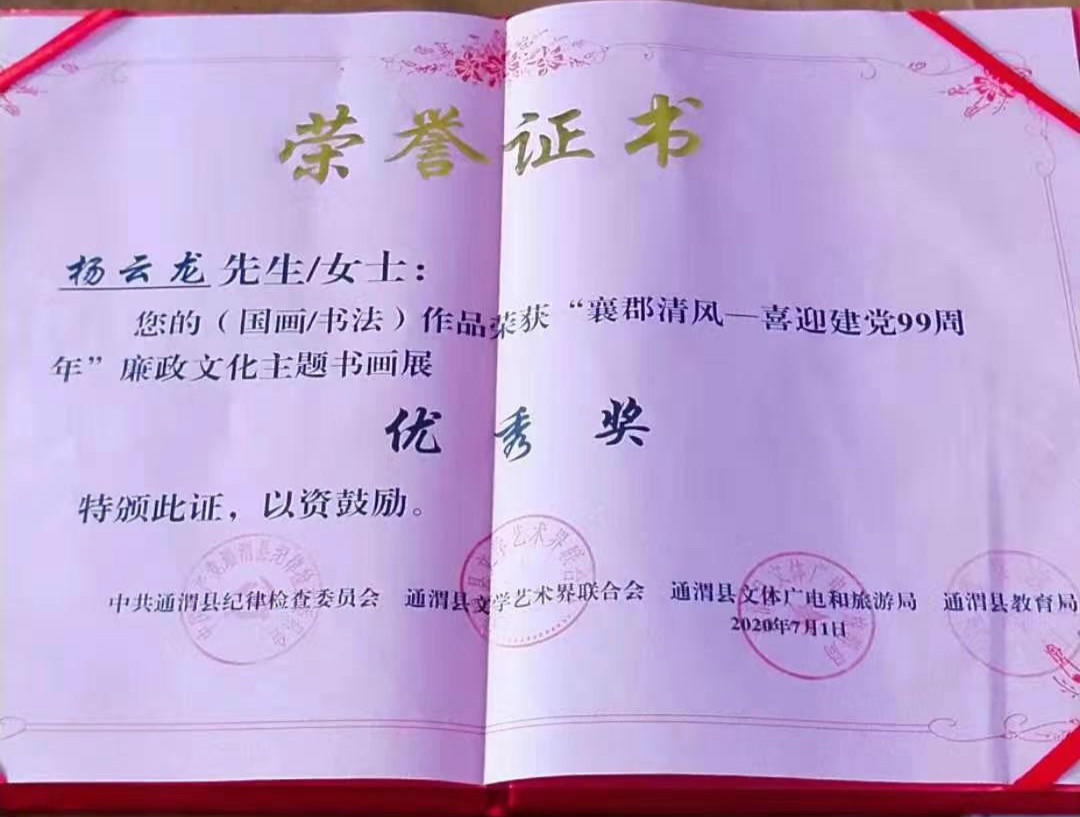 荣誉证书
杨云龙先生/女士：
您的（国画/书法）作品荣获“襄郡清风—喜迎建党99周
年”廉政文化主题书画展
优秀奖
特颁此证，以资鼓励。
中共通渭县纪律检查委员会 通渭县文学艺术界联合会 通渭县文体广电和旅游局 通渭县教育局
2020年7月1日